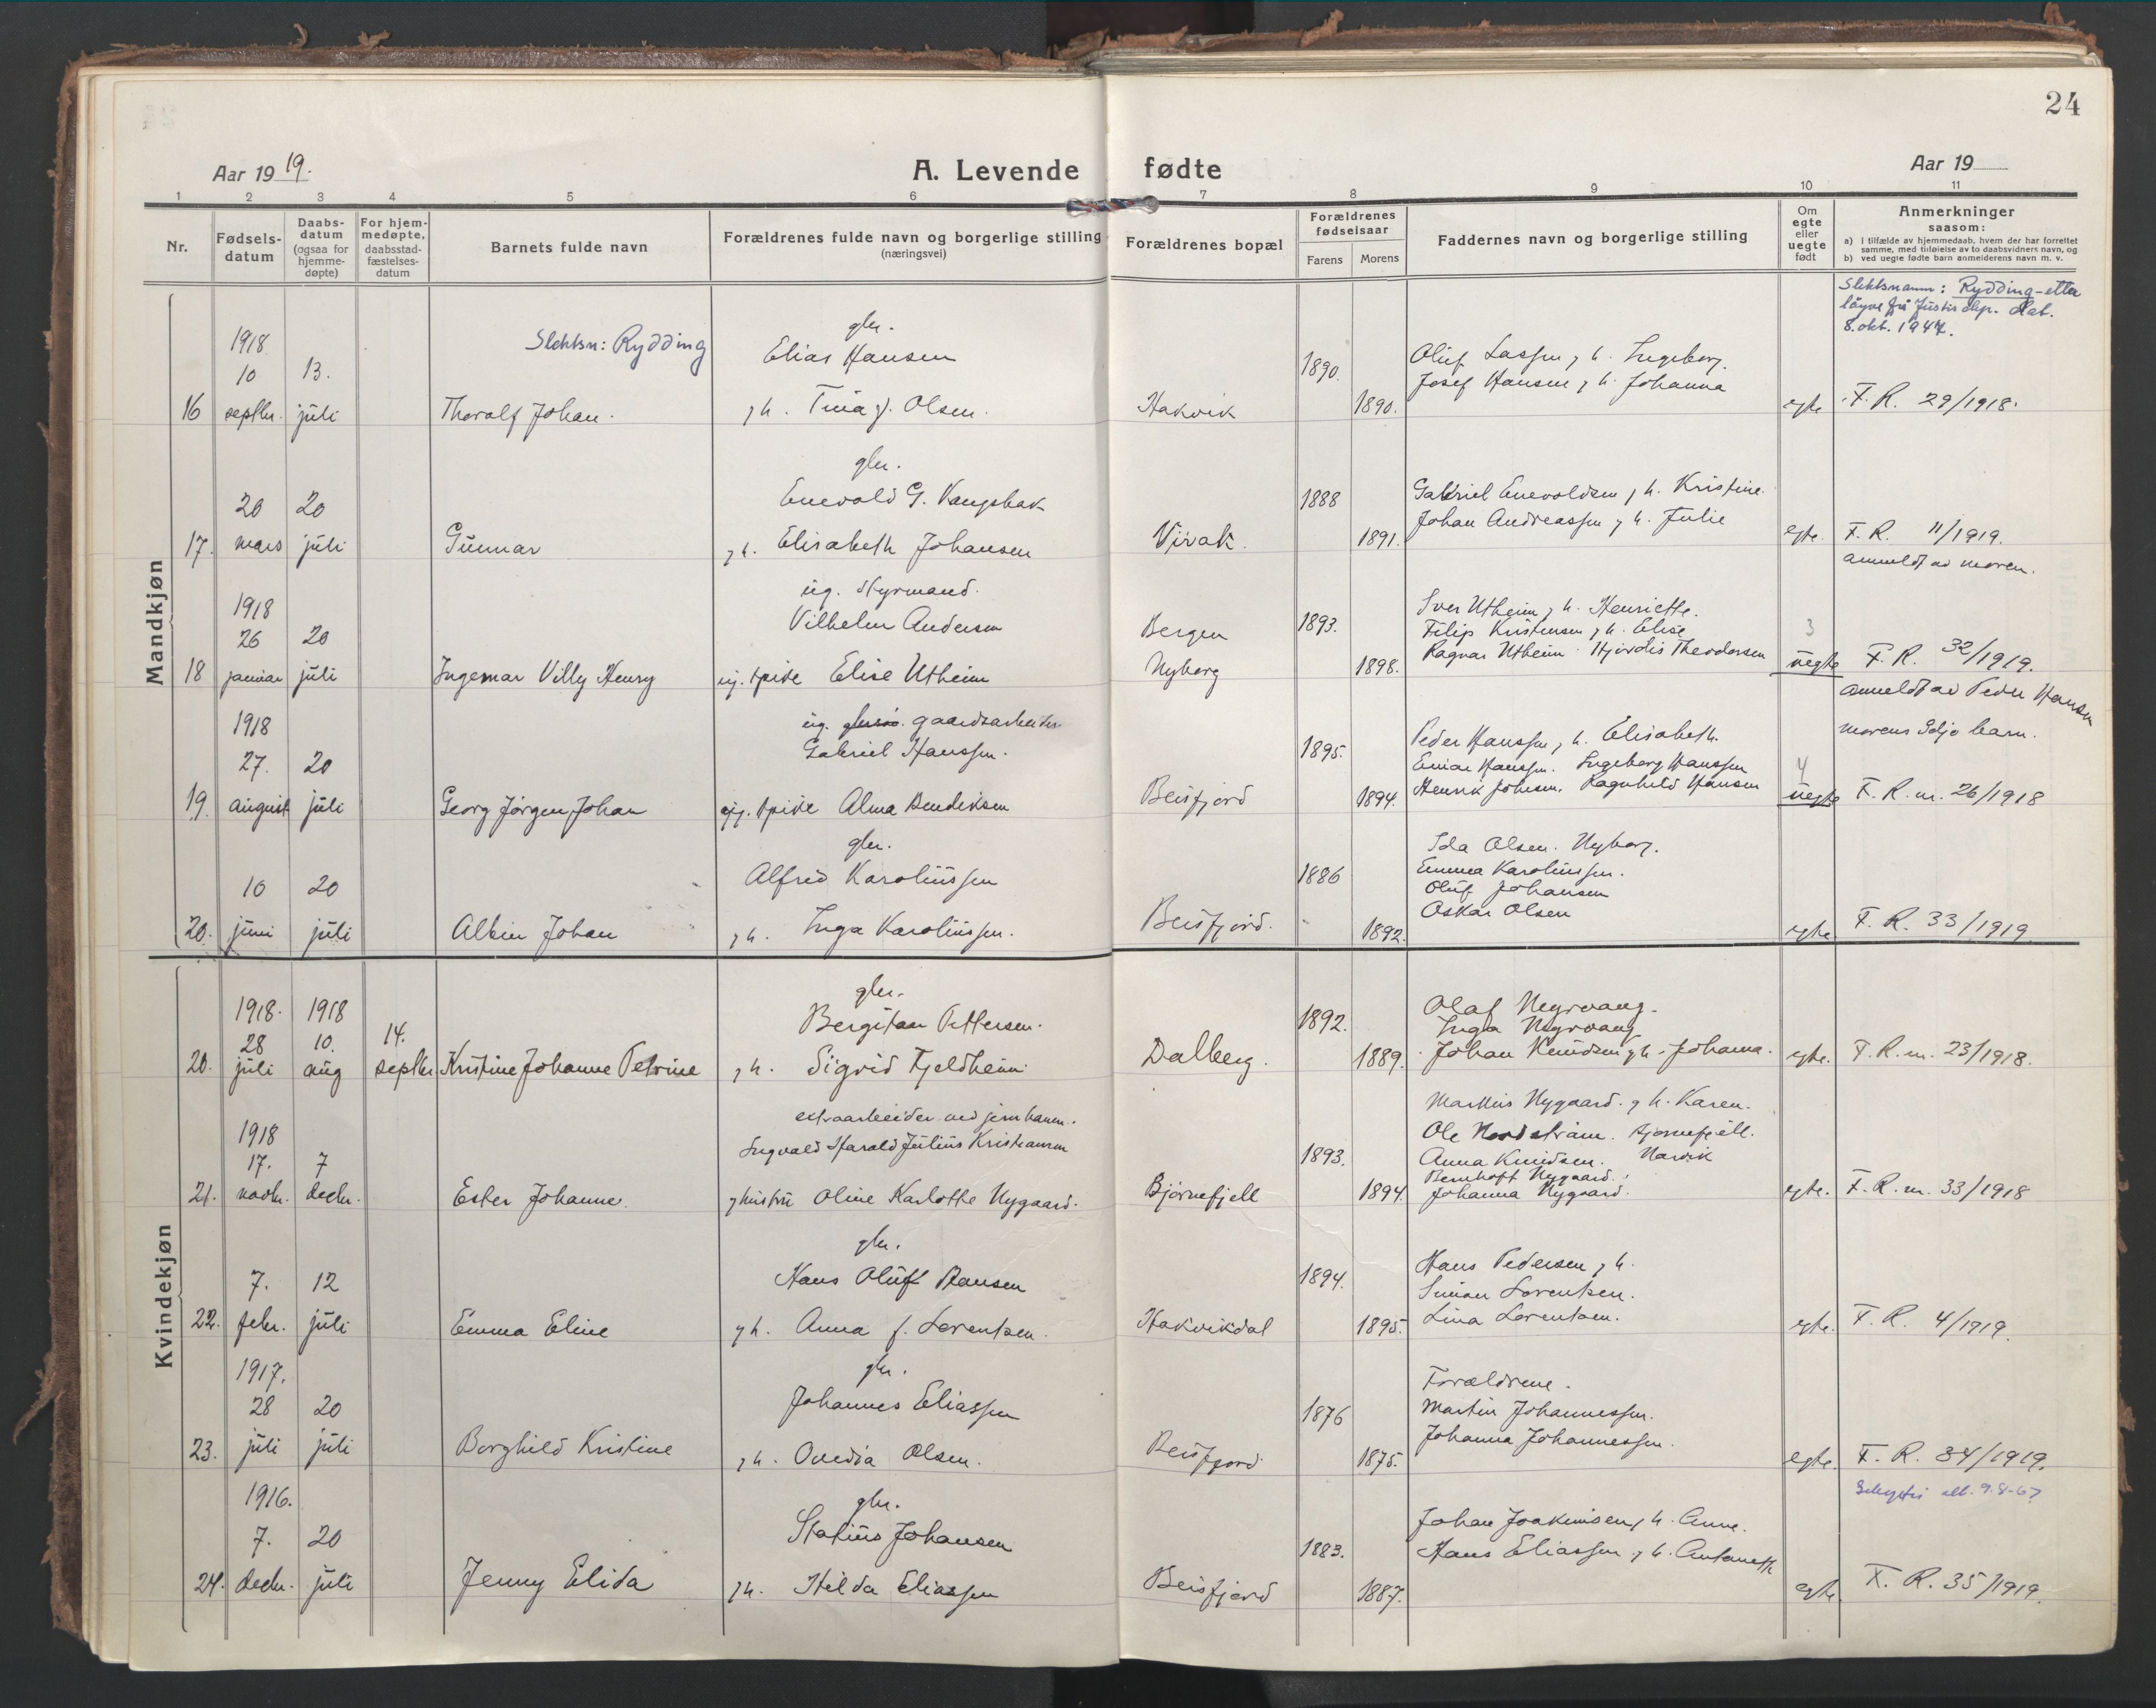 24
Aar 1919.
A. Levende fødte
Aar 19
1 2 3 4 5 6 7 8 9 10 11
Nr.
Fødsels-
datum
Daabs-
datum
(ogsaa for
hjemme-
døpte)
For hjem-
medøpte,
daabsstad-
fæstelses-
datum
Barnets fulde navn
Forældrenes fulde navn og borgerlige stilling
(næringsvei)
Forældrenes bopæl
Forældrenes
fødselsaar
Farens Morens
Faddernes navn og borgerlige stilling
Om
egte
eller
uegte
født
Anmerkninger
saasom:
a) i tilfælde av hjemmedaab, hvem der har forrettet
samme, med tilføielse av to daabsvidners navn, og
b) ved uegte fødte barn anmelderens navn m. v.
Mandkjøn
Slektsnamn: Rydding - etter
løyve frå Justisdep. dat.
8. okt. 1947.
Slektsn: Rydding
gbr.
1918
Elias Hansen
1890.
Oluf Lassen, h. Ingeborg.
10 13.
Josef Hansen, h. Johanna
16 septbr. juli Thoralf Johan. h. Tina J. Olsen. Hakvik 1890. egte F. R. 29/1918.
gbr.
Enevold G. Vangsbak
1888
Gabriel Enevoldsen, h. Kristine.
20 20
Johan Andreassen, h. Julie
17. mars juli Gunnar h. Elisabeth Johansen Virak. 1891. egte. F. R. 11/1919.
anmeldt av moren.
ug. Styrmand.
1918
Vilhelm Andersen
Bergen
1893.
Iver Utheim, h. Henriette.
26 20
Filip Kristensen, h. Elise
3
Ragnar Utheim. Hjørdis Theodorsen
18 januar juli Ingemar Villy Henry ug. pike Elise Utheim Nyborg 1898. uegte F. R. 32/1919.
anmeldt av Peder Hansen
ug. gaardsarbeider
morens 2djo barn.
1918
Gabriel Hanssen.
1895.
Peder Hanssen, h. Elisabeth.
27. 20
Einar Hanssen. Ingeborg Hanssen
4
Henrik Johnsen. Ragnhild Hansen
19. august juli Georg Jørgen Johan ug. pike Alma Bendiksen Beisfjord 1894. uegte F. R. nr. 26/1918
gbr.
Ida Olsen. Nyborg.
Alfred Karoliussen
1886
Emma Karoliussen.
10 20
Oluf Johansen
Oskar Olsen
20. juni juli Albin Johan h. Inga Karoliussen. Beisfjord. 1892. egte F. R. 33/1919
Kvindekjøn
gbr.
1918. 1918
Bergitan Pettersen.
1892.
Olaf Nygvang.
28 10. 14.
Inga Nygvang
20. juli aug septbr. Kristine Johanne Petrine h. Sigrid Fjeldheim Dalberg. 1889. Johan Knudsen, h. Johanna. egte. F. R. nr. 23/1918.
extraarbeider ved jernbanen.
Markus Nygaard. h. Karen.
1918
Ingvald Harald Julius Kristiansen
Ole Nordstrøm. Bjørnefjell.
17. 7
1893.
Anna Knudsen. Narvik
Bernhoft Nygaard.
21. novbr. decbr. Ester Johanne. hustru Oline Karlotte Nygaard. Bjørnefjell 1894. Johanna Nygaard. egte. F. R. nr. 33/1918
gbr.
Hans Oluf Hansen
1894.
Hans Pedersen, h.
7. 12
Simon Lorentsen.
22. febr. juli Emma Eline h. Anna f. Lorentsen. Hakvikdal 1895. Lina Lorentsen. egte. F. R. 4/1919.
gbr.
1917.
Johannes Eliassen
1876
Forældrene.
28 20
Martin Johannessen.
Johanna Johannessen.
23. juli juli Borghild Kristine h. Ovedia Olsen. Beisfjord 1875. egte. F. R. 34/1919.
1916.
gbr.
Statius Johansen
1883.
Johan Joakimsen, h. Anne.
7. 20
Hans Eliassen, h.
24. decbr. juli Jenny Elida h. Hilda Eliassen Beisfjord 1887. egte F. R. 35/1919.